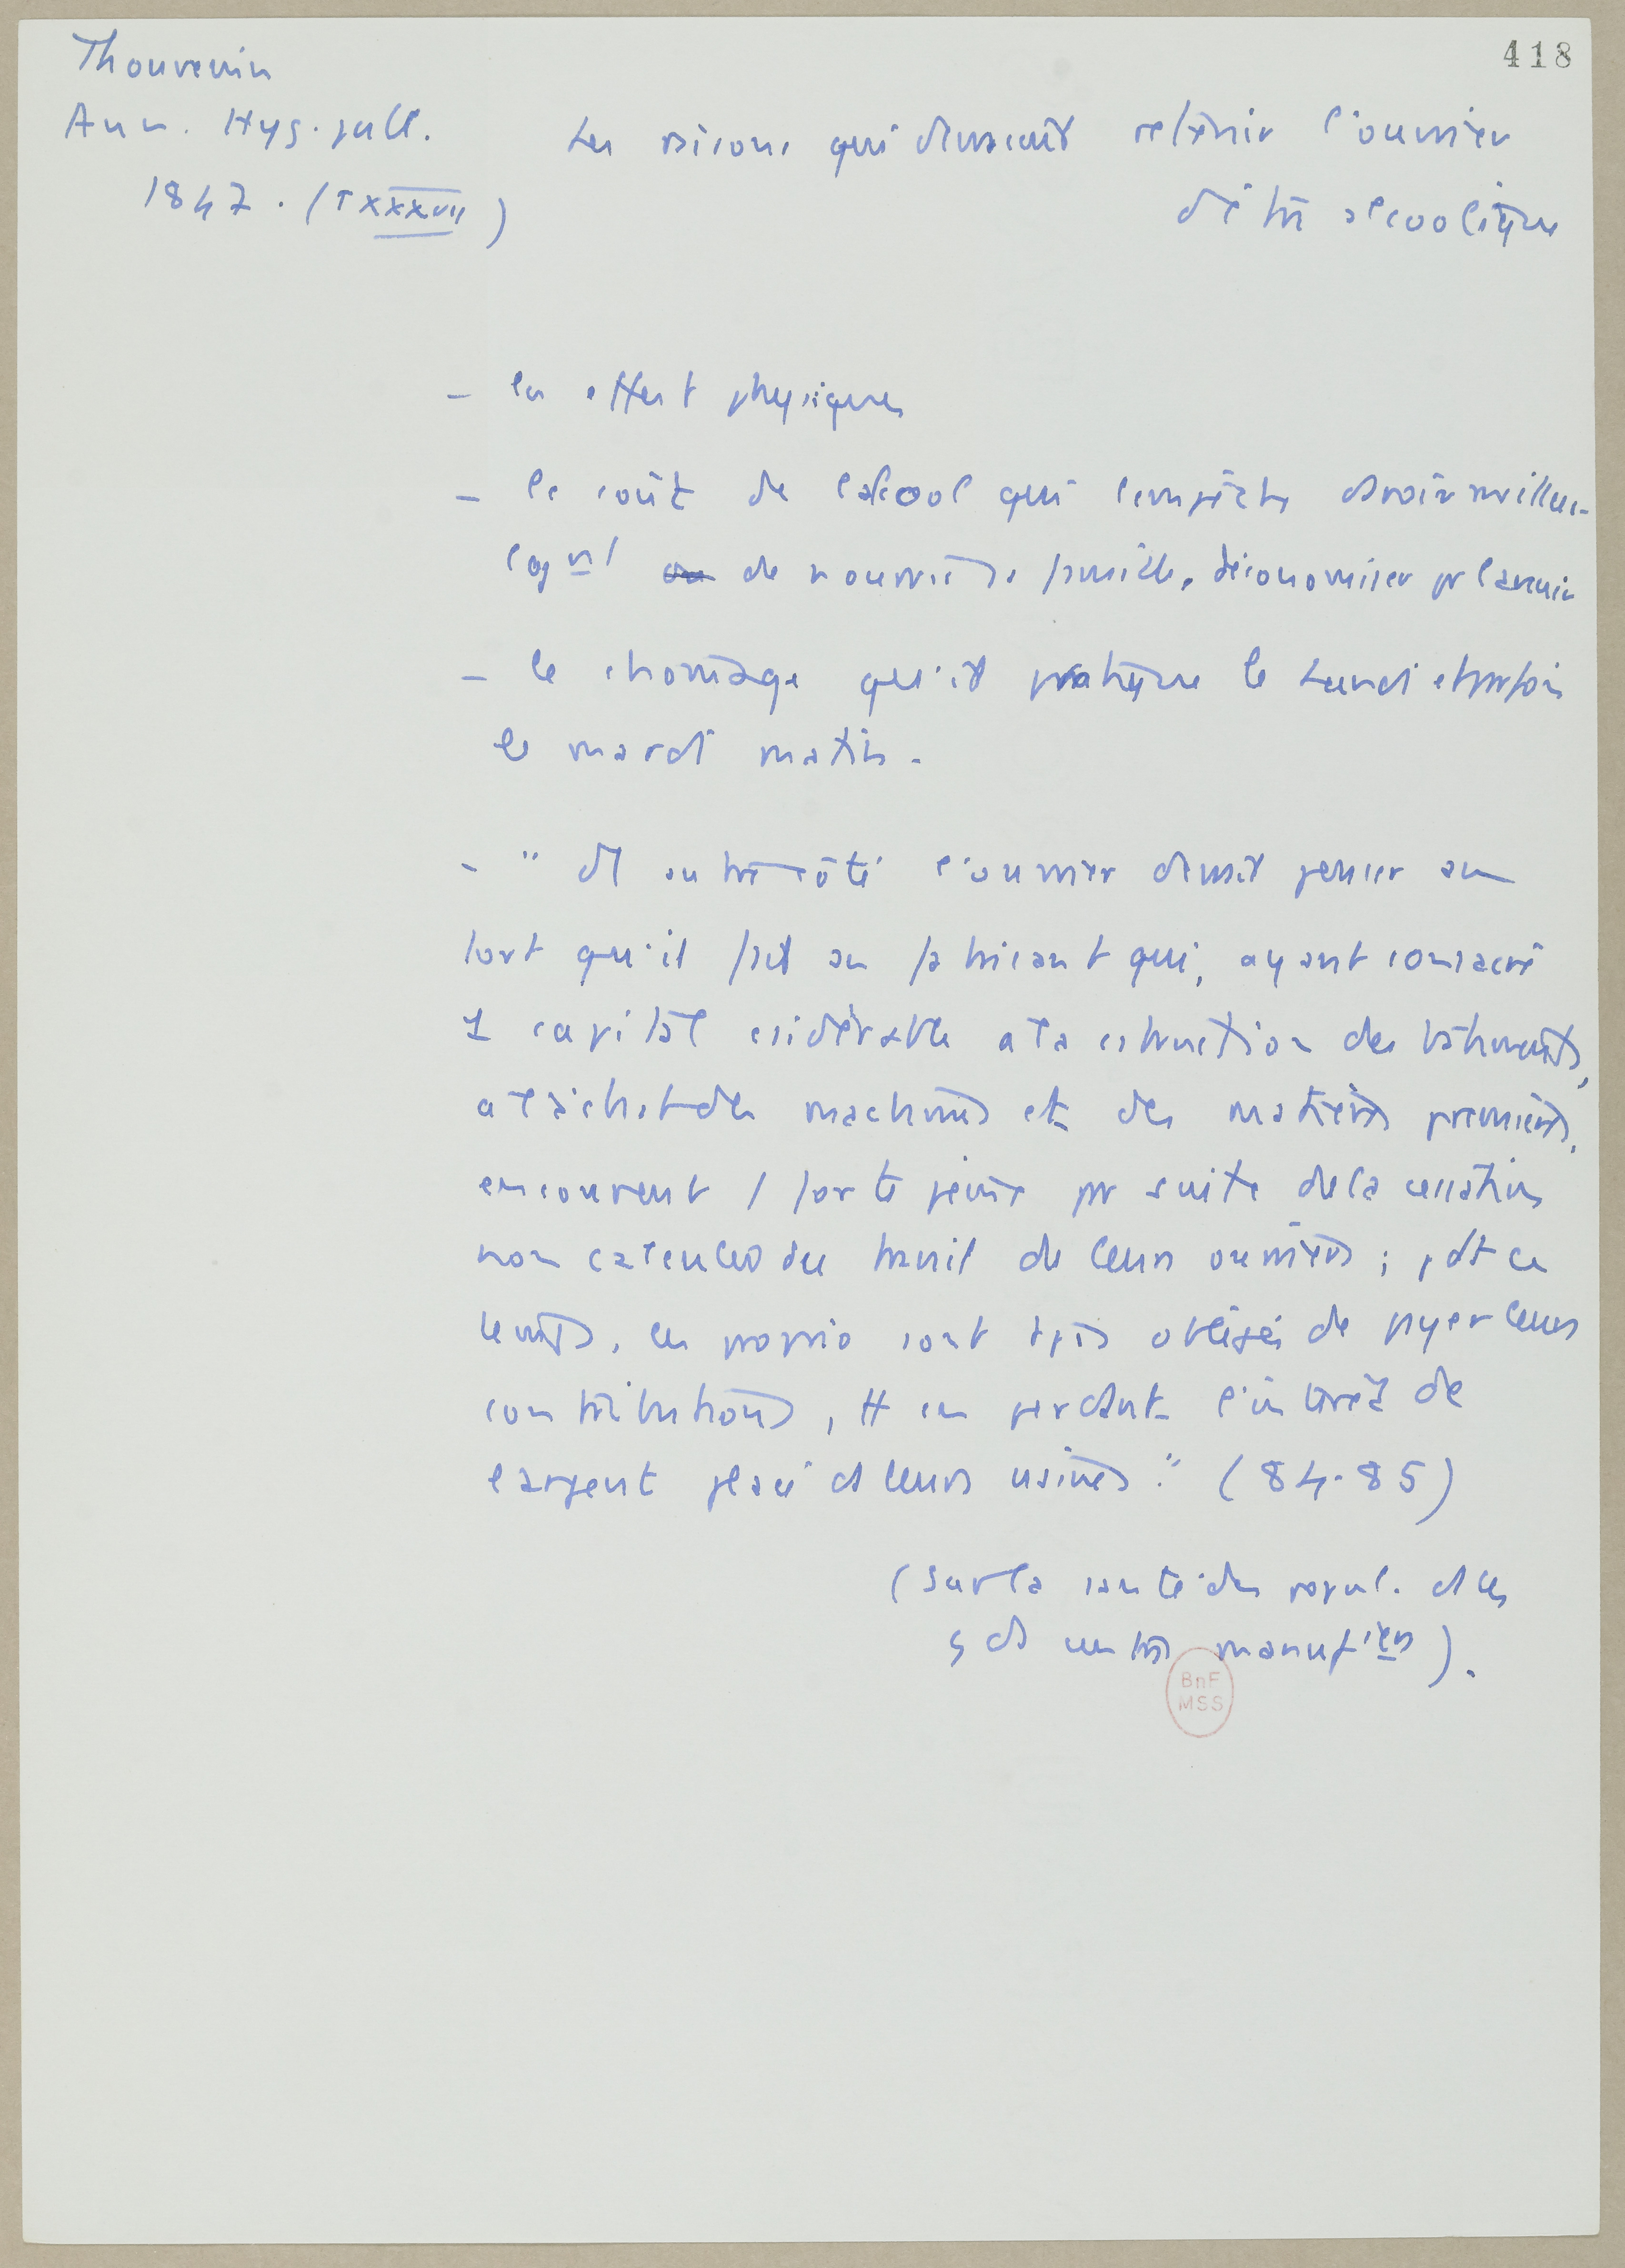 418
Thouvenin
Ann. Hyg. publ.
1847. (T XXXVII)
Les raisons qui devraient retenir l'ouvrier
d'être alcoolique
- les effets physiques
- le coût de l'alcool qui l'empêche d'avoir meilleur
lognt de nourrir sa famille, d'économiser pr l'avenir
- le chomage qu'il pratique le Lundi et parfois
le mardi matin.
- " D'1 autre côté l'ouvrier devrait penser au
tort qu'il fait au fabricant qui, ayant consacré
1 capital csidérable à la cstruction des bâtiments,
à l'achat des machines et des matières premières,
encourent 1 forte peine par suite de la cessation
non calculée du travail de leurs ouvriers ; pdt ce
temps, les proprio sont tjrs obligés de payer leurs
contributions, tt en perdant l'intérêt de
l'argent placé ds leurs usines." (84-85)
(Sur la santé des popul. ds les
gds centres manufres).
BnF
MSS